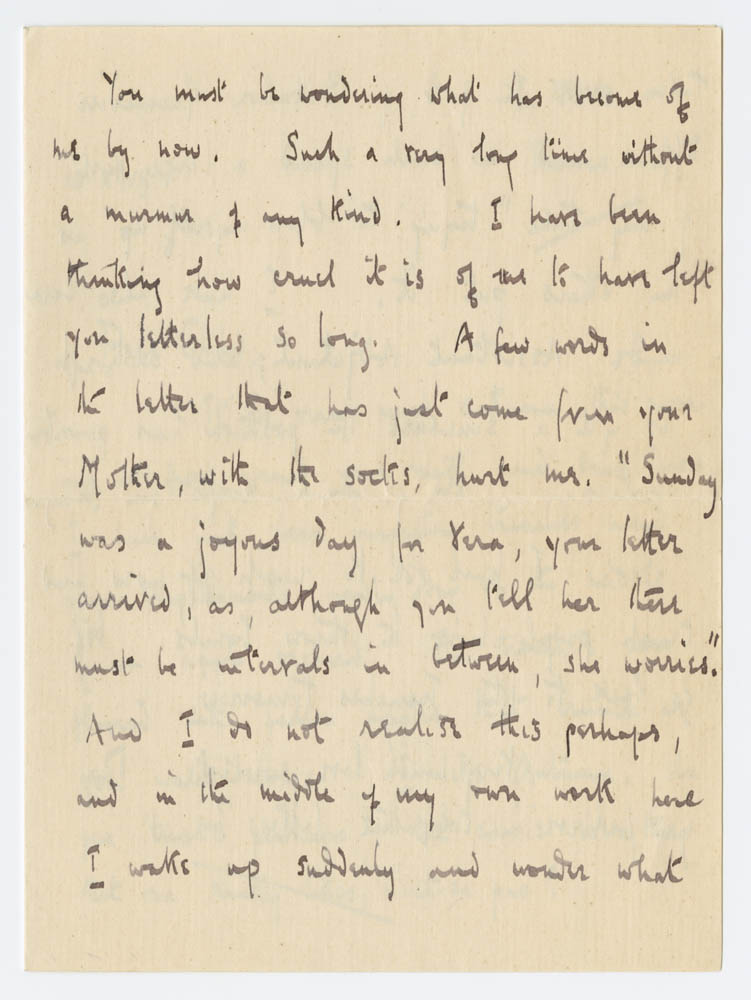 You must be wondering what has become of
me by now. Such a very long time without
a murmur of any kind. I have been
thinking how cruel it is of me to have left
you letterless so long. A few words in
the letter that has just come from your
Mother, with the socks, hurt me. "Sunday
was a joyous day for Vera, your letter
arrived, as, although you tell her there
must be intervals in between, she worries."
And I do not realise this perhaps,
and in the middle of my own work here
I wake up suddenly and wonder what